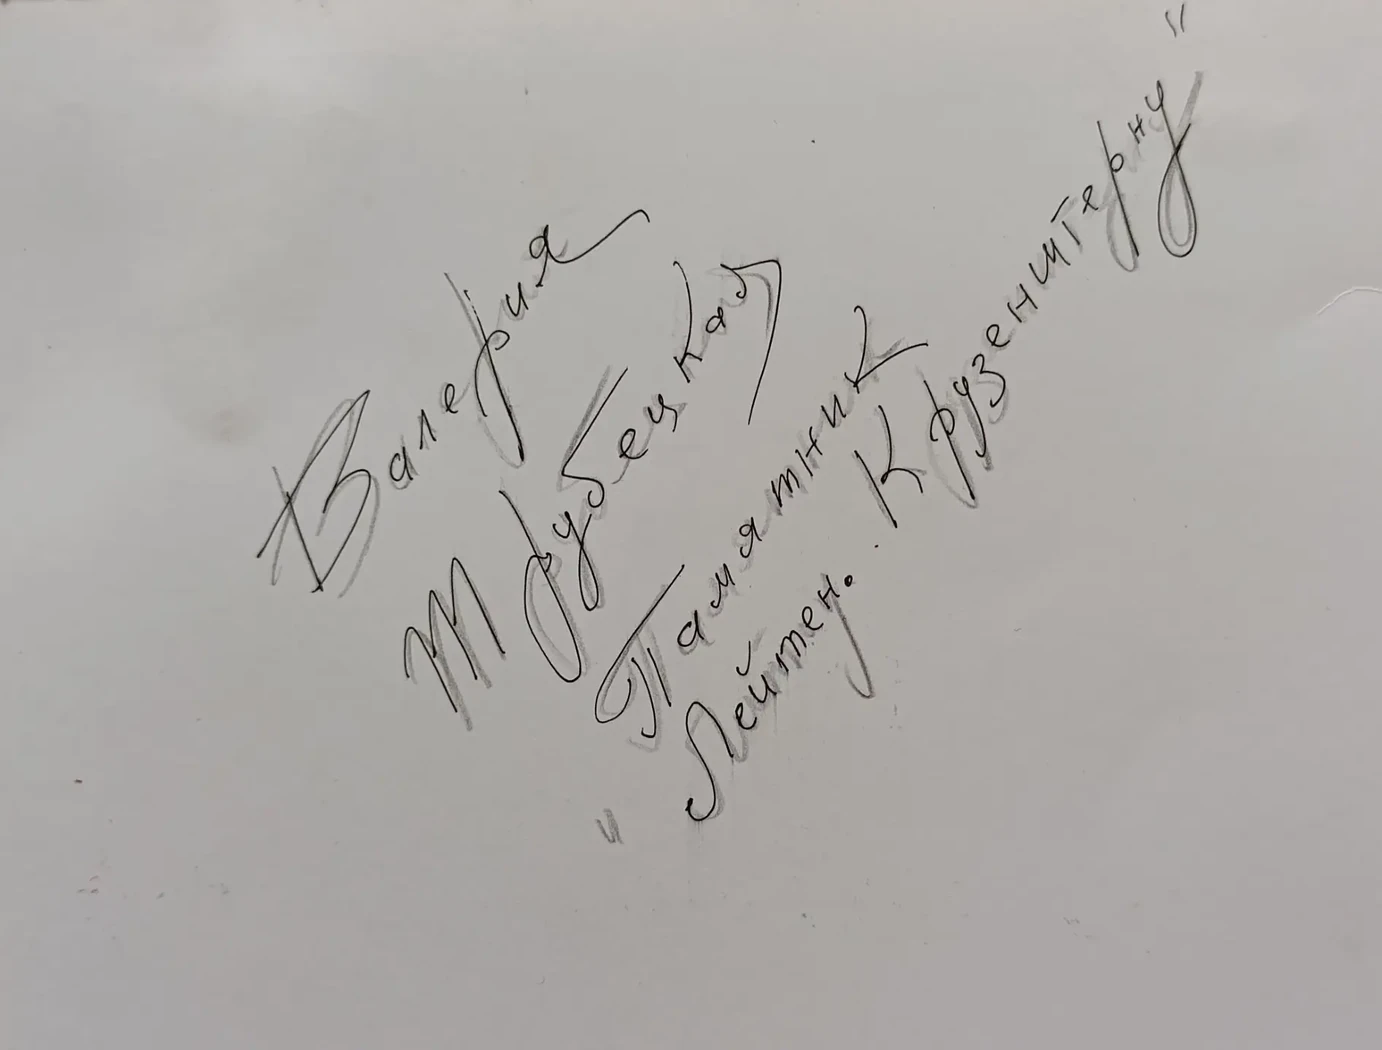 Валерия
Трубецкая
Памятник
"Лейтен. Крузенштерну"